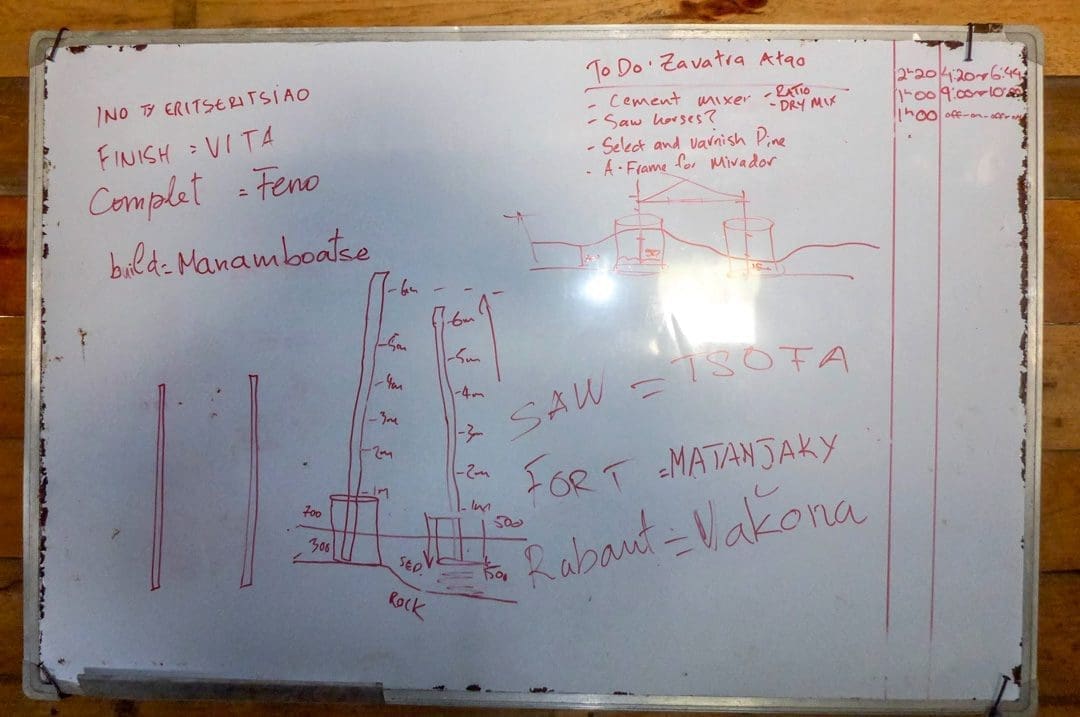 INO TY ERITSERITSIAO
FINISH = VITA
Complet = Feno
build = Manamboatse
To Do · Zavatra Atao
- Cement mixer - RATIO
- DRY MIX
- Saw horses?
- Select and varnish Pine
- A-Frame for Mirador
2h20 4:20→6:44
1h00
1h00 off-on-off-on
-6m
-5m
-4m
-3m
-2m
-1m
-6m
-5m
-4m
-3m
-2m
-1m
700
300
500
500
SED.
ROCK
SAW = TSOFA
FORT = MATANJAKY
Rabaut = Vakona